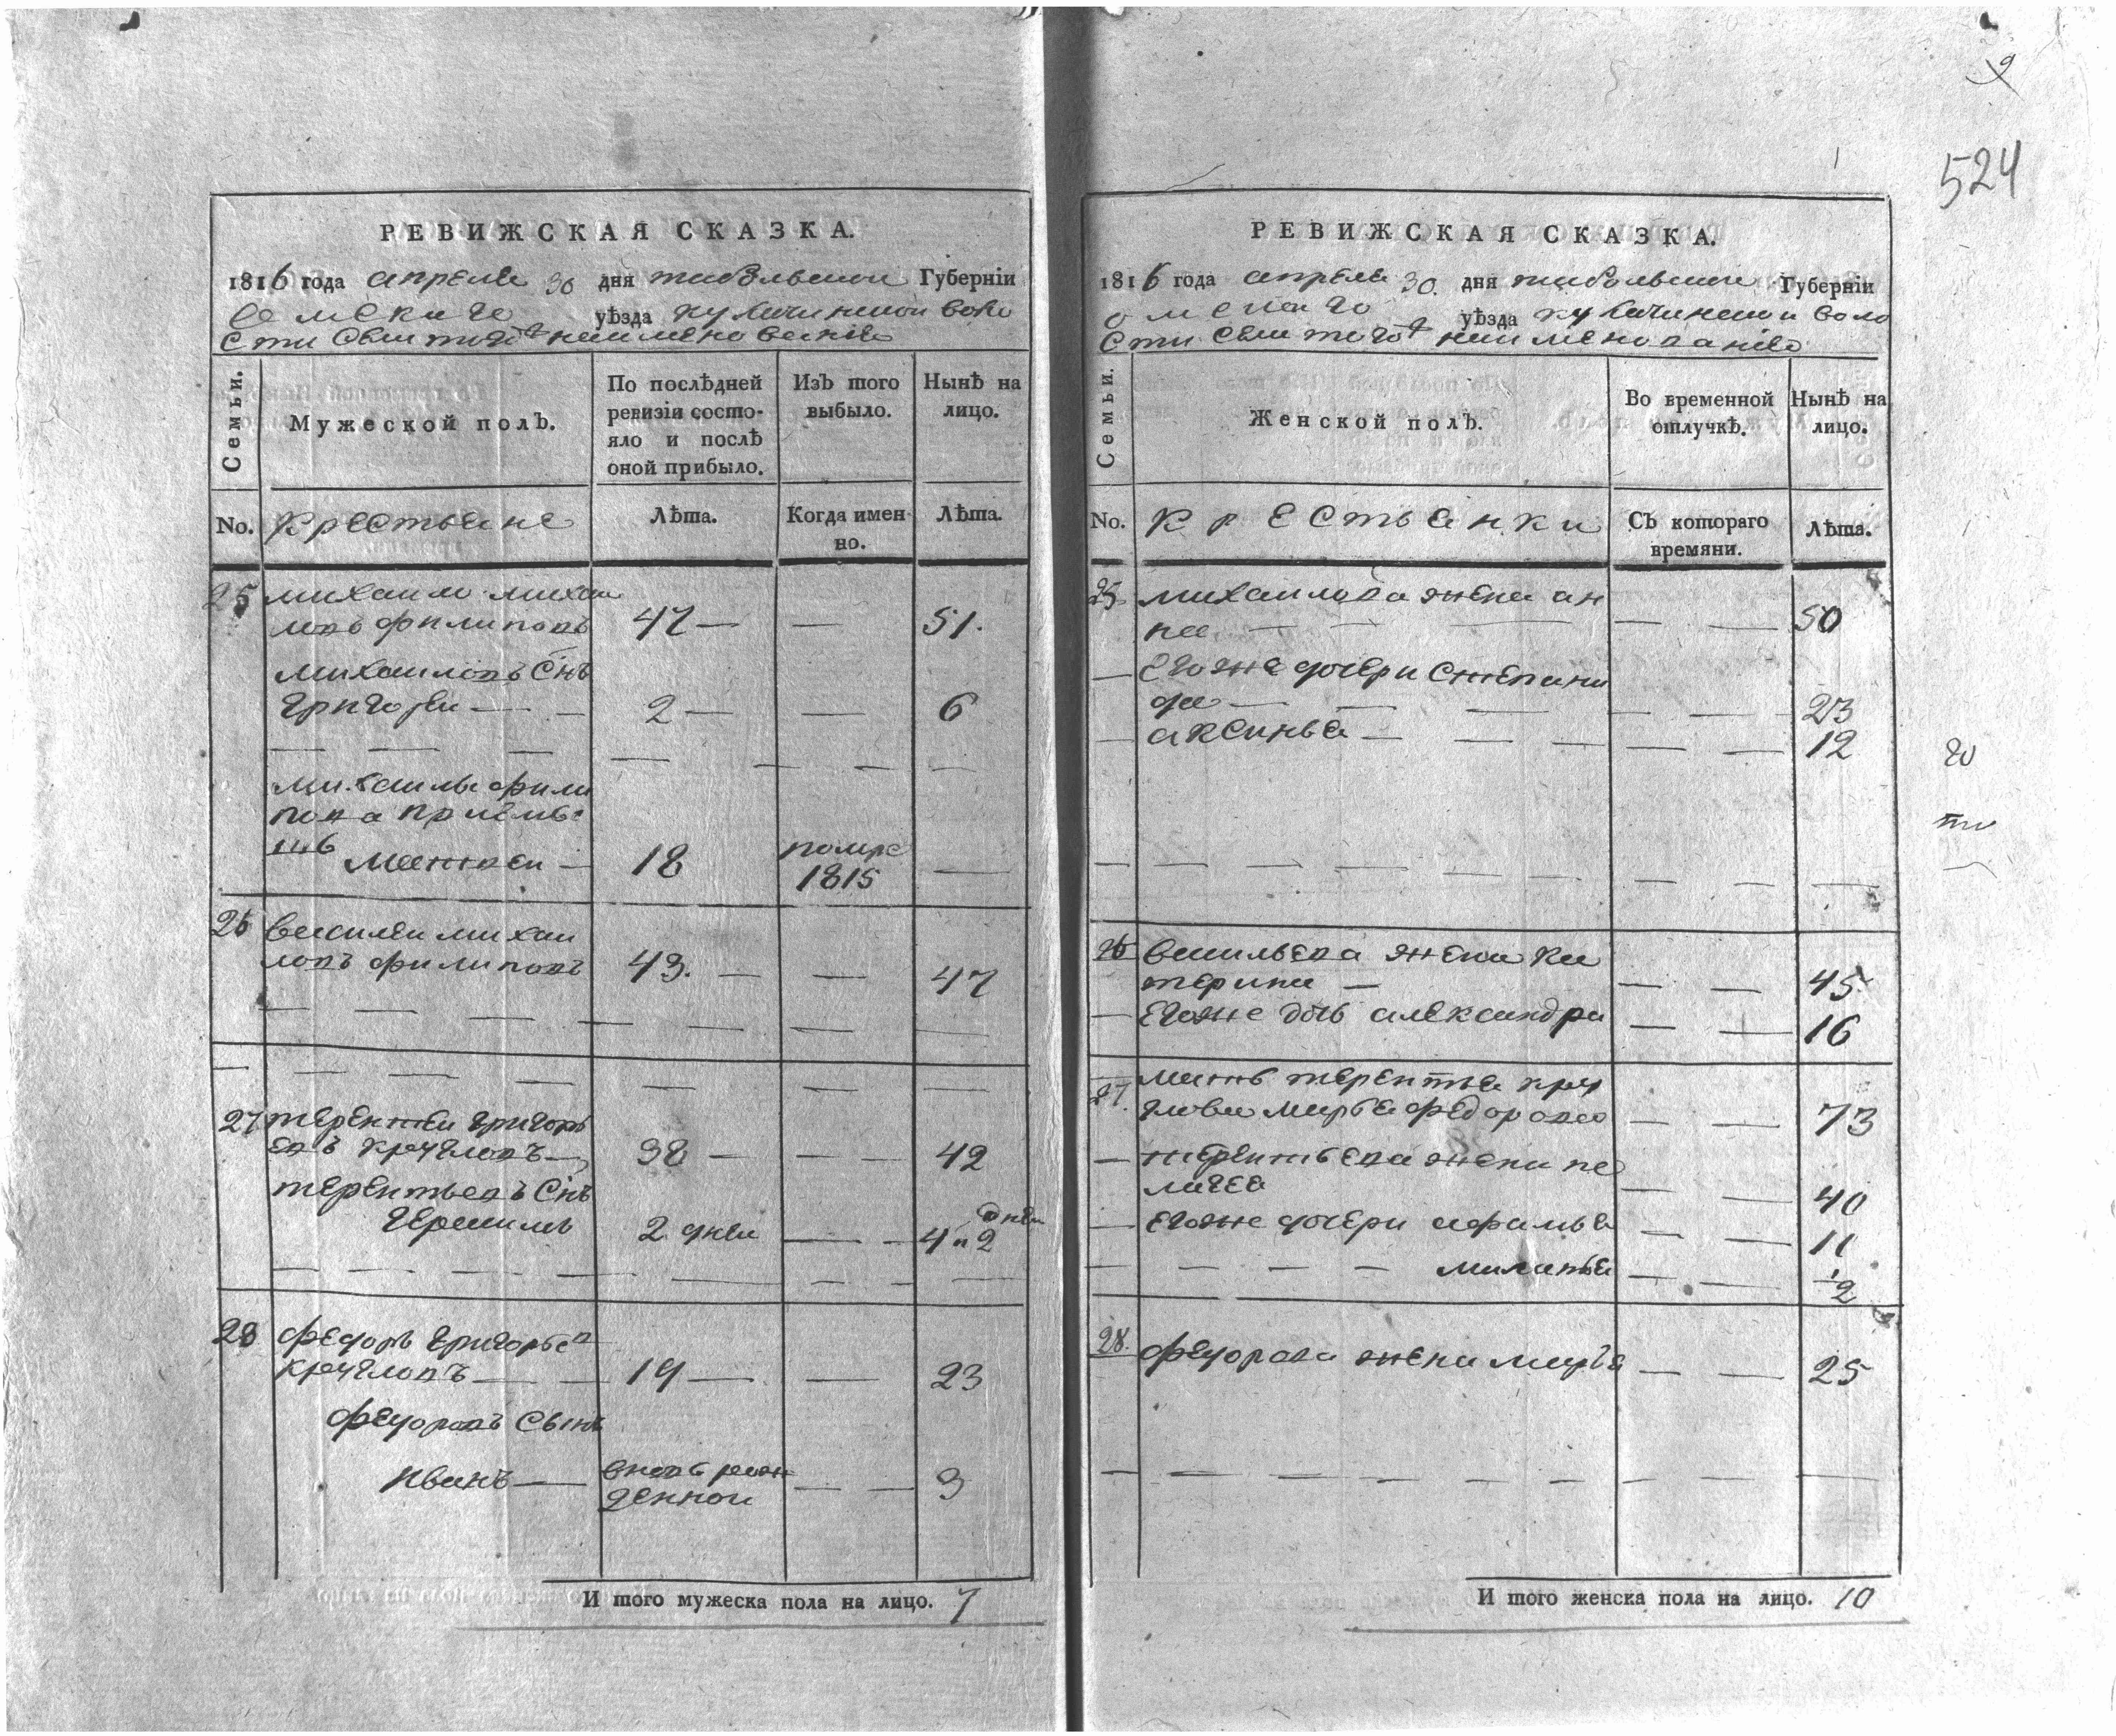 9
524
РЕВИЖСКАЯ СКАЗКА.
1816 года апреля 30 дня тобольской Губерніи
омскаго уѣзда кулачинской воло
сти тогоъ наименованiя
Семьи.
Мужеской полъ.
По послѣдней ревизіи состо-
яло и послѣ
оной прибыло.
Изъ того выбыло.
Нынѣ на лицо.
No.
крестьяне
Лѣта.
Когда имен-
но.
Лѣта.
25 михаило михаи
ловъ филиповъ 47 — — 51.
михаиловъ Снъ
григореи — — 2 — — 6
михаилы фили
пова приемы
шъ матвеи — 18 помре 1815 —
26 василеи михаи
ловъ филиповъ 43. — — 47
27 терентеи григорь
евъ кругловъ — 38 — — — 42
терентьевъ Снъ
герасимъ 2 дней — — 4 и 2 дней
28 федоръ григорьев
кругловъ — — 19 — — 23
федоровъ Сынъ
иванъ — вновь рож
денной — — 3
И того мужеска пола на лицо. 7
РЕВИЖСКАЯ СКАЗКА.
1816 года апреля 30. дня тобольской Губерніи
омскаго уѣзда кулачинской воло
сти тогоъ наименованiя
Семьи.
Женской полъ.
Во временной отлучкѣ.
Нынѣ на лицо.
No.
крестьянки
Съ котораго
времяни.
Лѣта.
25 михаилова жена ан
на — — — — — 50
— Егоже дочери степани
да — — — — — 23
— аксинья — — — — — 12
26 васильева жена ка
терина — — — 45
— Егоже дочь александра — — 16
27. мать терентья круг
лова марья федорова — — 73
— терентьева жена пе
лагея — — 40
— Егоже дочери афимья — — 11
— — — — маланья — — 1/2
28. федорова жена марья — — 25
И того женска пола на лицо. 10
го
ти